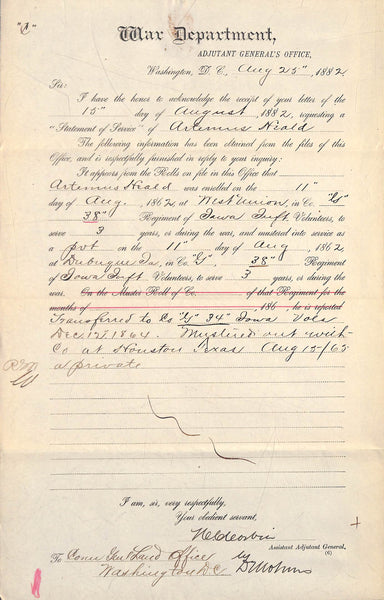 "C"
War Department,
ADJUTANT GENERAL'S OFFICE,
Washington, D. C., Aug 25", 1882
Sir:
I have the honor to acknowledge the receipt of your letter of the
15" day of August, 1882, requesting a
"Statement of Service" of Artemus Heald
The following information has been obtained from the files of this
Office, and is respectfully furnished in reply to your inquiry:
It appears from the Rolls on file in this Office that
Artemus Heald was enrolled on the 11"
day of Aug, 1862 at West Union, in Co. "G"
38" Regiment of Iowa Inft Volunteers, to
serve 3 years, or during the war, and mustered into service as
a pvt on the 11" day of Aug, 1862,
at Dubuque Ia, in Co. "G", 38" Regiment
of Iowa Inft Volunteers, to serve 3 years, or during the
war. On the Muster Roll of Co. , of that Regiment for the
months of , 186 , he is reported
Transferred to Co "G" 34" Iowa Vols
Dec 12, 1864. Mustered out with
Co at Houston Texas Aug 15/65
a private
I am, sir, very respectfully,
Your obedient servant,
Assistant Adjutant General,
(6)
To Comr Genl Land Office
Washington DC